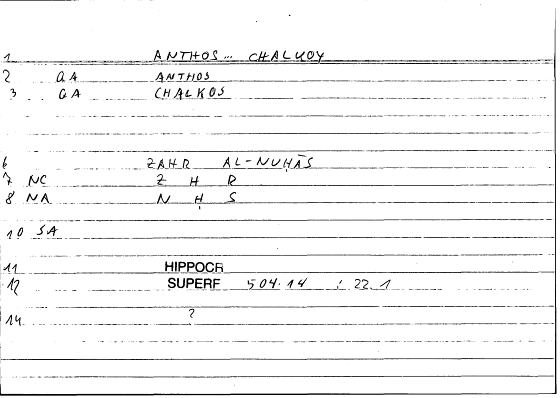 1 ANTHOS... CHALKOY
2 GA ANTHOS
3 GA CHALKOS
6 ZAHR AL-NUḤĀS
7 NC Z H R
8 NA N Ḥ S
10 SA
11 HIPPOCR
12 SUPERF 504.14 : 22.1
14 ?